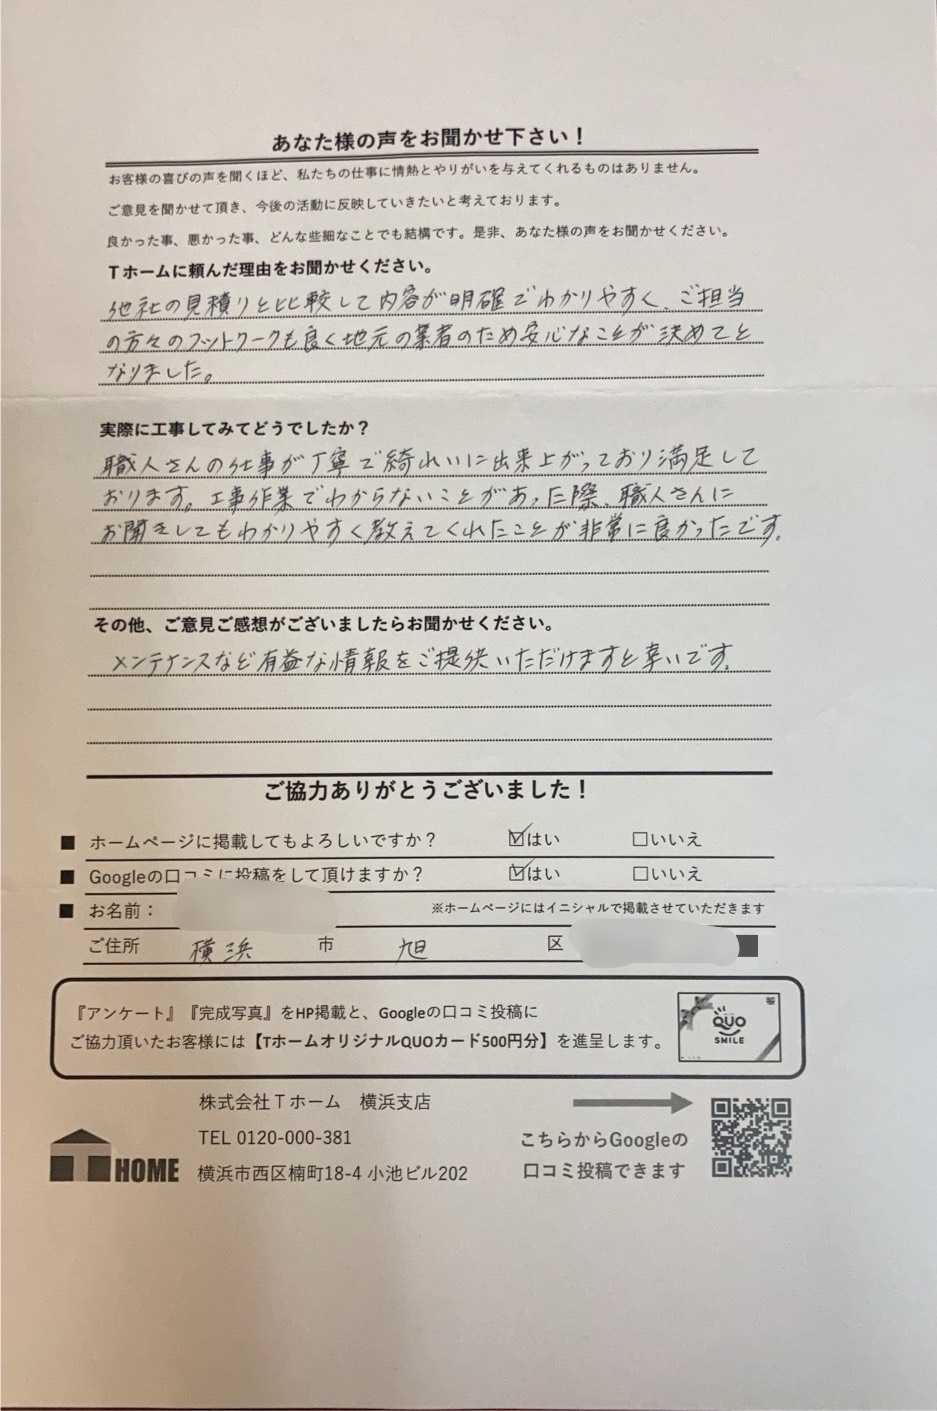 あなた様の声をお聞かせ下さい！
お客様の喜びの声を聞くほど、私たちの仕事に情熱とやりがいを与えてくれるものはありません。
ご意見を聞かせて頂き、今後の活動に反映していきたいと考えております。
良かった事、悪かった事、どんな些細なことでも結構です。是非、あなた様の声をお聞かせください。
Ｔホームに頼んだ理由をお聞かせください。
他社の見積りと比較して内容が明確でわかりやすく、ご担当
の方々のフットワークも良く地元の業者のため安心なことが決めてと
なりました。
実際に工事してみてどうでしたか？
職人さんの仕事が丁寧で綺れいに出来上がっており満足して
おります。工事作業でわからないことがあった際、職人さんに
お聞きしてもわかりやすく教えてくれたことが非常に良かったです。
その他、ご意見ご感想がございましたらお聞かせください。
メンテナンスなど有益な情報をご提供いただけますと幸いです。
ご協力ありがとうございました！
■ ホームページに掲載してもよろしいですか？ ☑はい □いいえ
■ Googleの口コミに投稿をして頂けますか？ ☑はい □いいえ
■ お名前： ※ホームページにはイニシャルで掲載させていただきます
ご住所 横浜 市 旭 区
『アンケート』『完成写真』をHP掲載と、Googleの口コミ投稿に
ご協力頂いたお客様には【TホームオリジナルQUOカード500円分】を進呈します。
QUO
SMILE
株式会社Ｔホーム　横浜支店
TEL 0120-000-381
横浜市西区楠町18-4 小池ビル202
HOME
こちらからGoogleの
口コミ投稿できます